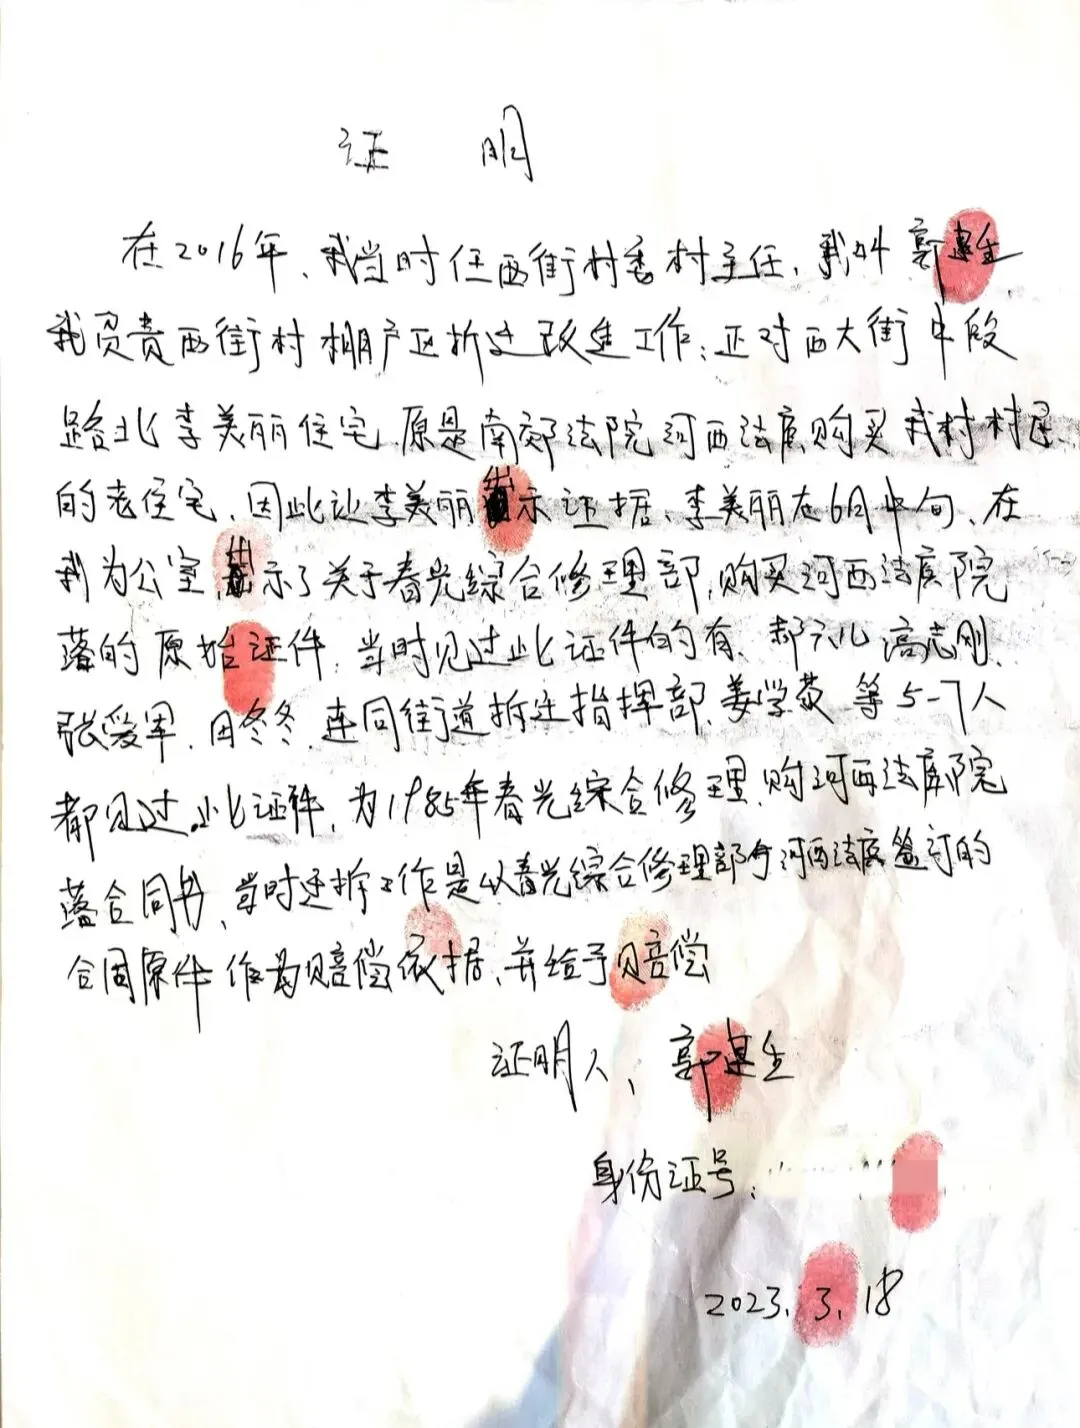 证 明
在2016年、我当时任西街村委村主任，我叫郭建生，
我负责西街村棚户区拆迁改造工作；正对西大街中段
路北李美丽住宅，原是南郊法院河西法庭，购买我村村民
的老住宅、因此让李美丽出示证据、李美丽在6月中旬、在
我办公室，出示了关于春光综合修理部，购买河西法庭院
落的原始证件，当时见过此证件的有、郝六儿 高志刚、
张爱军，田冬冬，连同街道拆迁指挥部、姜学英 等5-7人
都见过此证件，为1985年春光综合修理，购河西法庭院
落合同书，当时还拆工作是以春光综合修理部与河西法庭签订的
合同原件作为赔偿依据、并给予赔偿
证明人、郭建生
身份证号：
2023.3.18